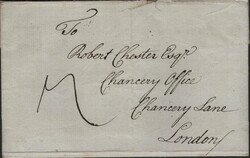 To
Robert Chester Esqr.
Chancery Office
Chancery Lane
London